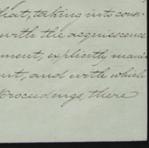 that, taking into cons
with the acquiescence
ment, explicitly mani
nt, and with which
proceedings there